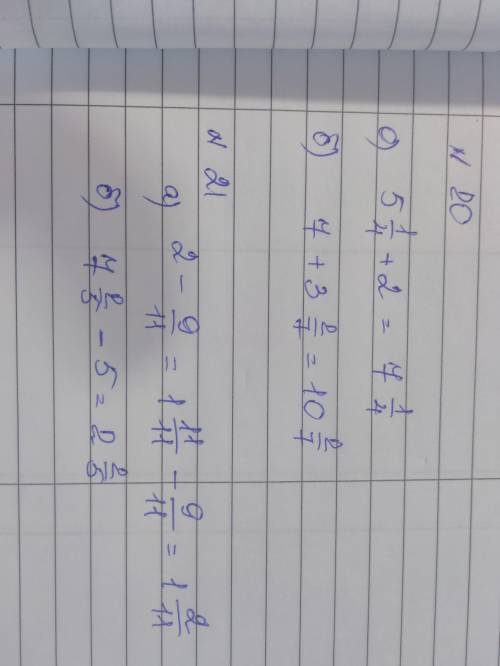 N 20
а) 5 1/4 + 2 = 7 1/4
б) 7 + 3 2/7 = 10 2/7
N 21
а) 2 - 9/11 = 1 11/11 - 9/11 = 1 2/11
б) 7 2/5 - 5 = 2 2/5